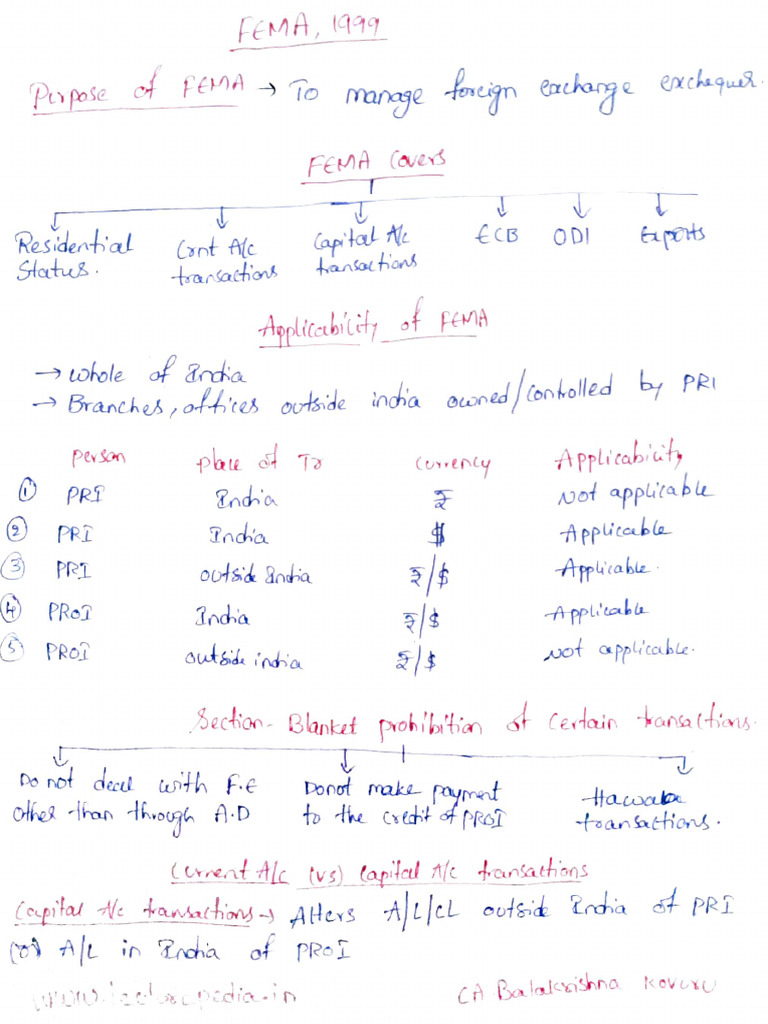 FEMA, 1999
Purpose of FEMA → To manage foreign exchange exchequer.
FEMA Covers
Residential Status.
Crnt A/c transactions
Capital A/c transactions
ECB
ODI
Exports
Applicability of FEMA
→ Whole of India
→ Branches, offices outside india owned/controlled by PRI
Person Place of Tr Currency Applicability
① PRI India ₹ Not applicable
② PRI India $ Applicable
③ PRI outside India ₹/$ Applicable.
④ PROI India ₹/$ Applicable
⑤ PROI outside india ₹/$ Not applicable.
Section - Blanket prohibition of Certain transactions.
Do not deal with F.E other than through A.D
Donot make payment to the credit of PROI
Hawala transactions.
Current A/c (vs) Capital A/c transactions
Capital A/c transactions → Alters A/L/CL outside India of PRI
(or) A/L in India of PROI
CA Balakrishna Kovuru